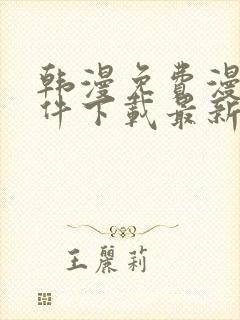 韩漫免费漫
件下载最新
王麗莉